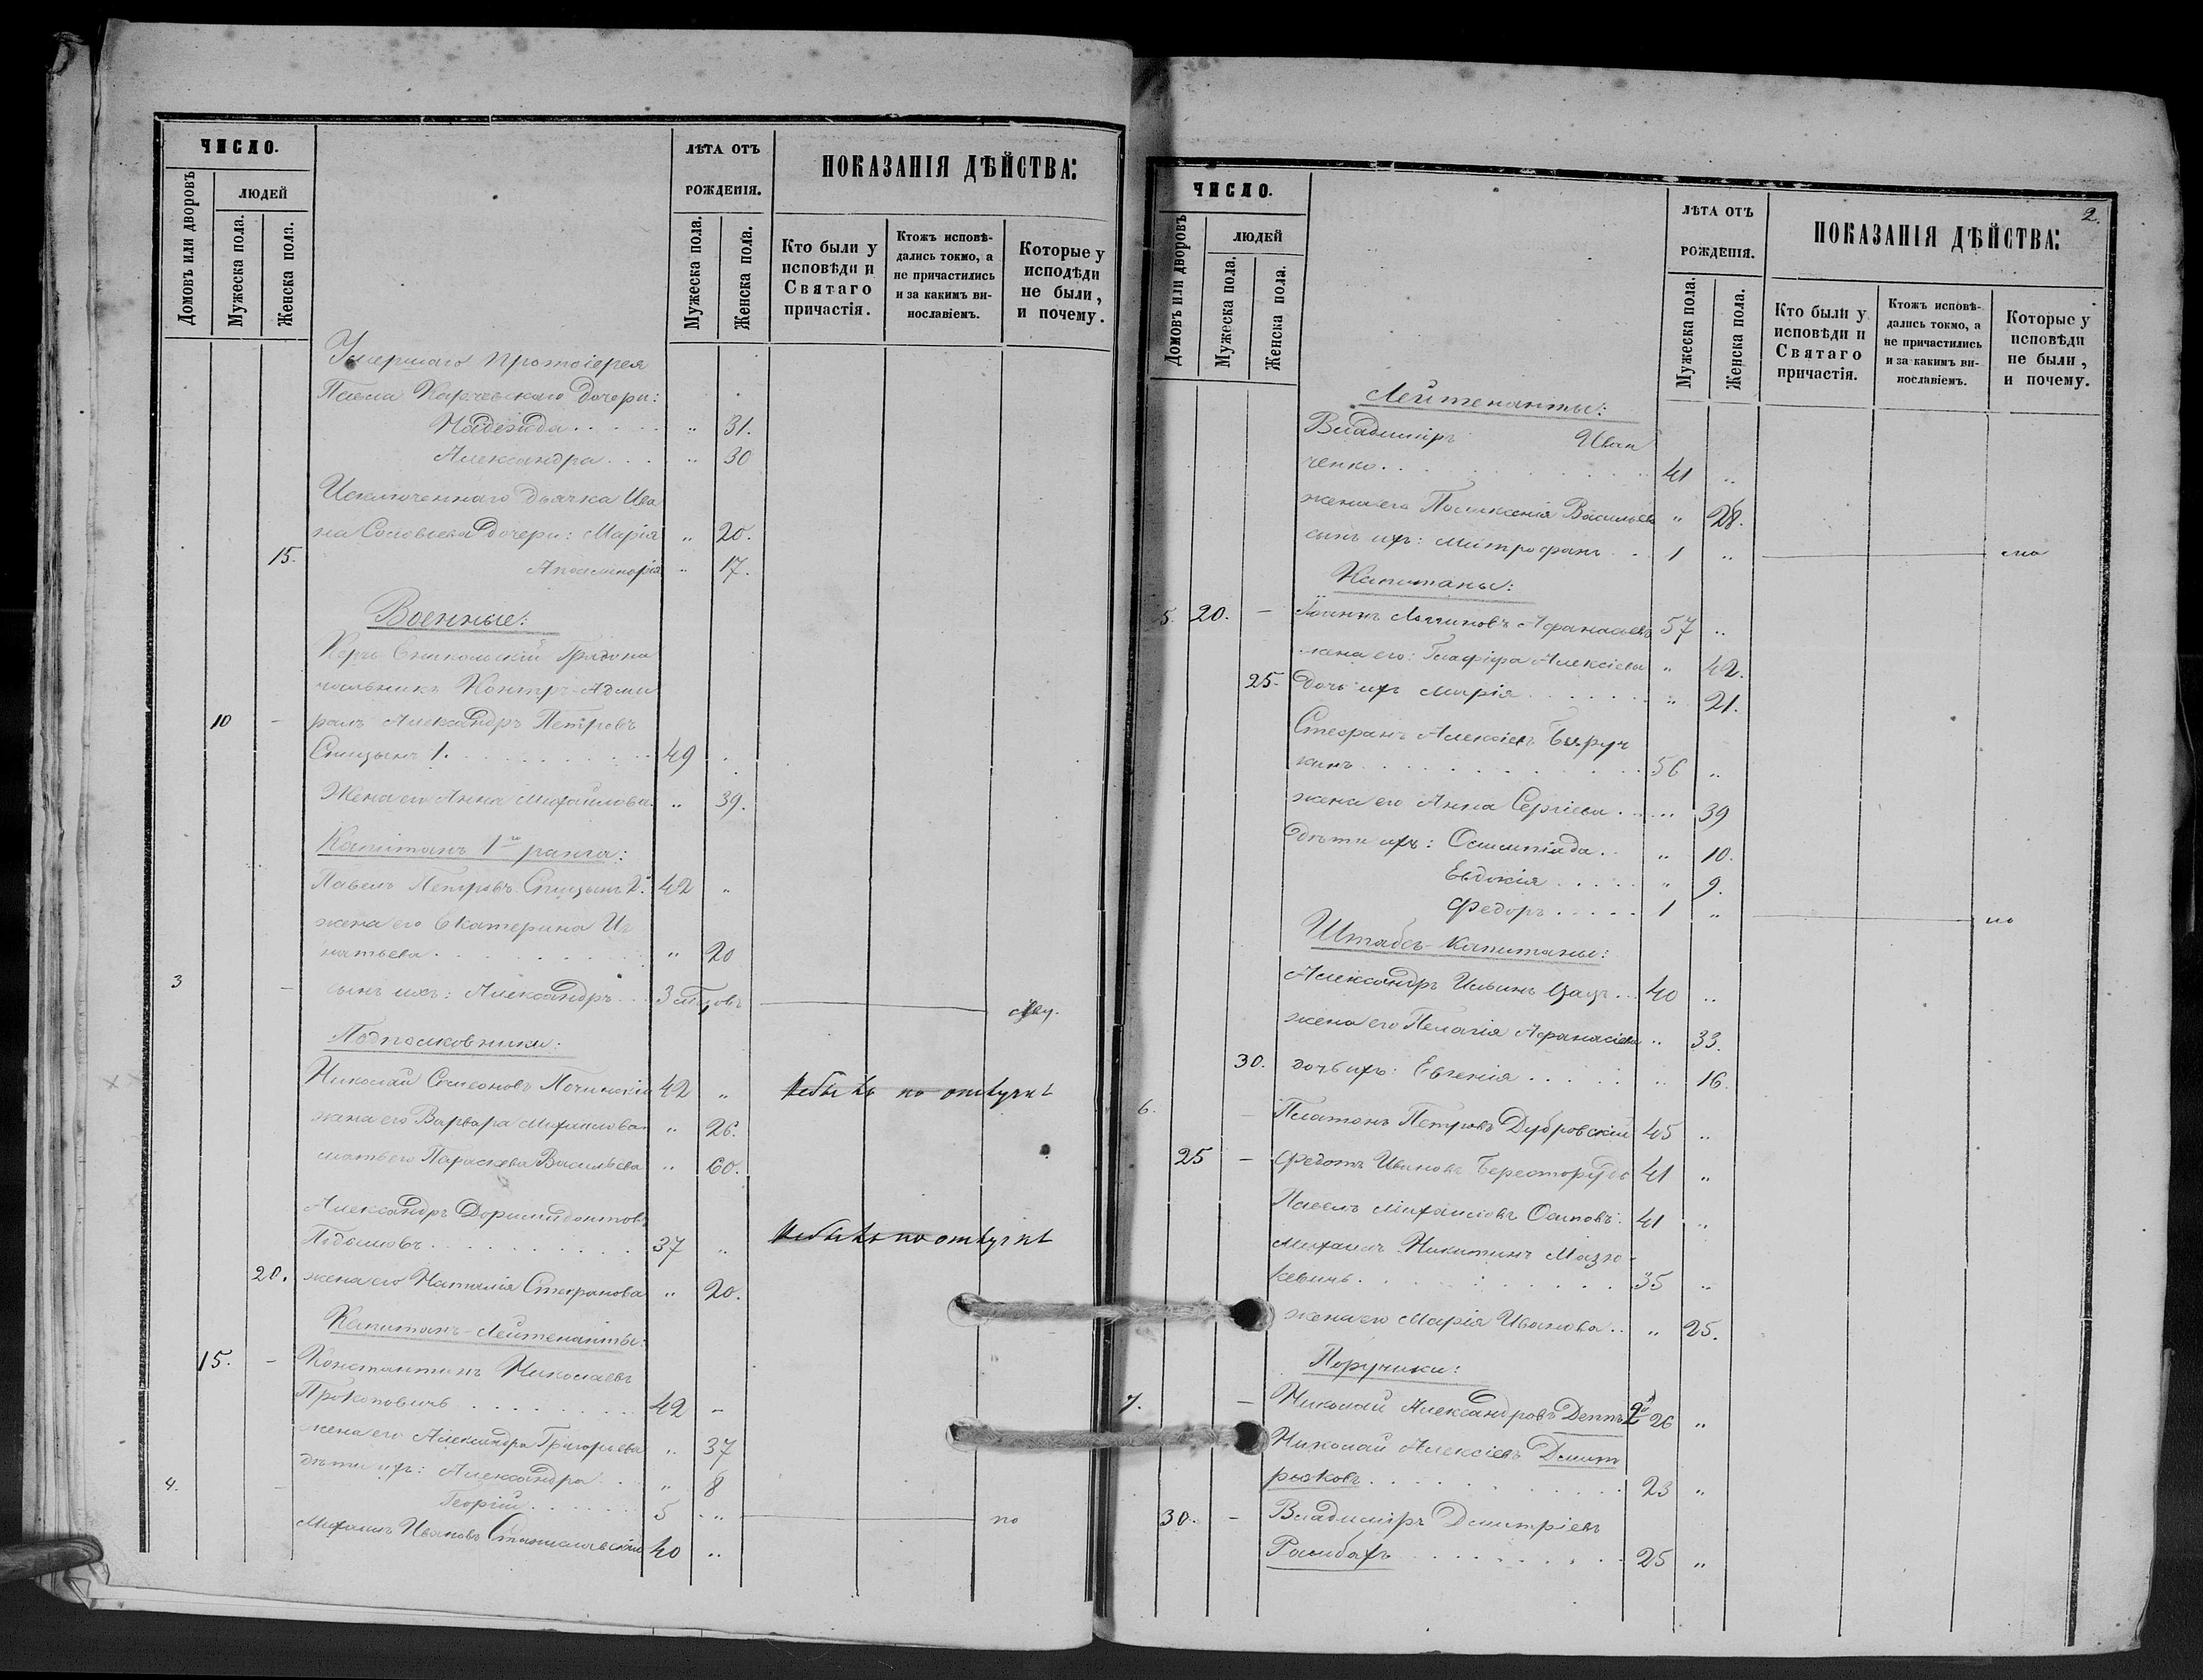 ЧИСЛО.
ЛѢТА ОТЪ РОЖДЕНІЯ.
ПОКАЗАНІЯ ДѢЙСТВА:
Домовъ или дворовъ
ЛЮДЕЙ
Мужеска пола.
Женска пола.
Мужеска пола.
Женска пола.
Кто были у исповѣди и Святаго причастія.
Ктожъ исповѣ-дались токмо, а не причастились и за какимъ ви-нославіемъ.
Которые у исподѣди не были, и почему.
Умершаго Протоіерея
Павла Карчевскаго дочери:
Надежда . . . . . „ 31.
Александра . . . „ 30
Исключеннаго дьячка Ива
на Соловьева дочери: Марія „ 20.
15. Аполинарія „ 17.
Военные:
Керчь Еникольскій Градона
чальникъ Контръ-Адми
10 - ралъ Александръ Петровъ
Спицынъ 1. . . . . 49 .
Жена его Анна Михайлова. „ 39.
Капитанъ 1го ранга:
Павелъ Петровъ Спицынъ 2й 42 „
жена его Екатерина Иг
натьева . . . . . „ 20
3 - сынъ ихъ: Александръ . . 3
Подполковники:
Николай Симеоновъ 42 „ по отлучкѣ
жена его Варвара Михайлова „ 26.
мать его Параскева Васильева „ 60.
Александръ Доримидонтовъ
37 „ по отлучкѣ
20. жена его Наталія Стефанова „ 20.
Капитанъ-Лейтенанты:
15. - Константинъ Николаевъ
Прокоповичъ . . . . . 42 „
жена его Александра Григорьева „ 37
4. - дѣти ихъ: Александра . . „ 8
Георгій . . . . . 5 „ мо
Михаилъ Ивановъ Станиславскій 40 „
2.
ЧИСЛО.
ЛѢТА ОТЪ РОЖДЕНІЯ.
ПОКАЗАНІЯ ДѢЙСТВА:
Домовъ или дворовъ
ЛЮДЕЙ
Мужеска пола.
Женска пола.
Мужеска пола.
Женска пола.
Кто были у исповѣди и Святаго причастія.
Ктожъ исповѣ-дались токмо, а не причастились и за какимъ ви-нославіемъ.
Которые у исповѣди не были, и почему.
Лейтенанты:
Владиміръ Иван
ченко . . . . . 41 „
жена его Поликсенія Васильева „ 28.
сынъ ихъ: Митрофанъ . . 1 „ мло
Капитаны:
5. 20. - Іоаннъ Логиновъ Афанасьевъ 57 „
жена его: Глафира Алексіева „ 42.
25. дочь ихъ Марія . . . . . „ 21.
Стефанъ Алексіевъ Бируч
кинъ . . . . . 56 „
жена его Анна Сергіева . . . „ 39
дѣти ихъ: Олимпіада . . „ 10.
Евдокія . . . . . „ 9.
Федоръ . . . . . 1 „ мло
Штабсъ-Капитаны:
Александръ Ильинъ . . 40 „
жена его Пелагія Афанасіева „ 33.
30. дочь ихъ: Евгенія . . . . . „ 16.
6. - Платонъ Петровъ Дубровскій 45 „
25 - Федотъ Ивановъ 41 „
Павелъ Михаиловъ Осиповъ . 41 „
Михаилъ Никитинъ Мазю-
кевичъ . . . . . 35 „
жена его Марія Иванова . . „ 25.
Поручики:
7. - Николай Александровъ Деппъ 2й 26 „
Николай Алексіевъ Дмит
рюковъ . . . . . 23 „
30. - Владиміръ Димитріевъ
Рамбахъ . . . . . 25 „